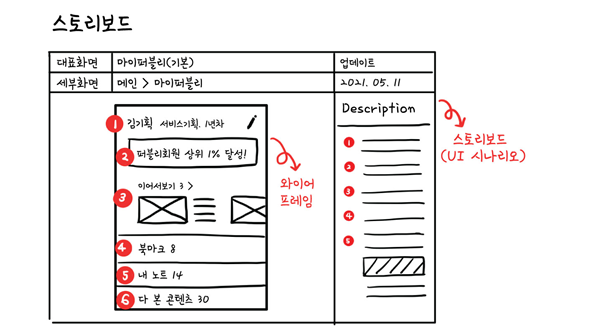 스토리보드
대표화면 마이퍼블리(기본) 업데이트
세부화면 메인 > 마이퍼블리 2021. 05. 11
1 김기획 서비스기획. 1년차
2 퍼블리회원 상위 1% 달성!
3 이어서보기 3 >
4 북마크 8
5 내 노트 14
6 다 본 콘텐츠 30
와이어
프레임
Description
1
2
3
4
5
스토리보드
(UI 시나리오)